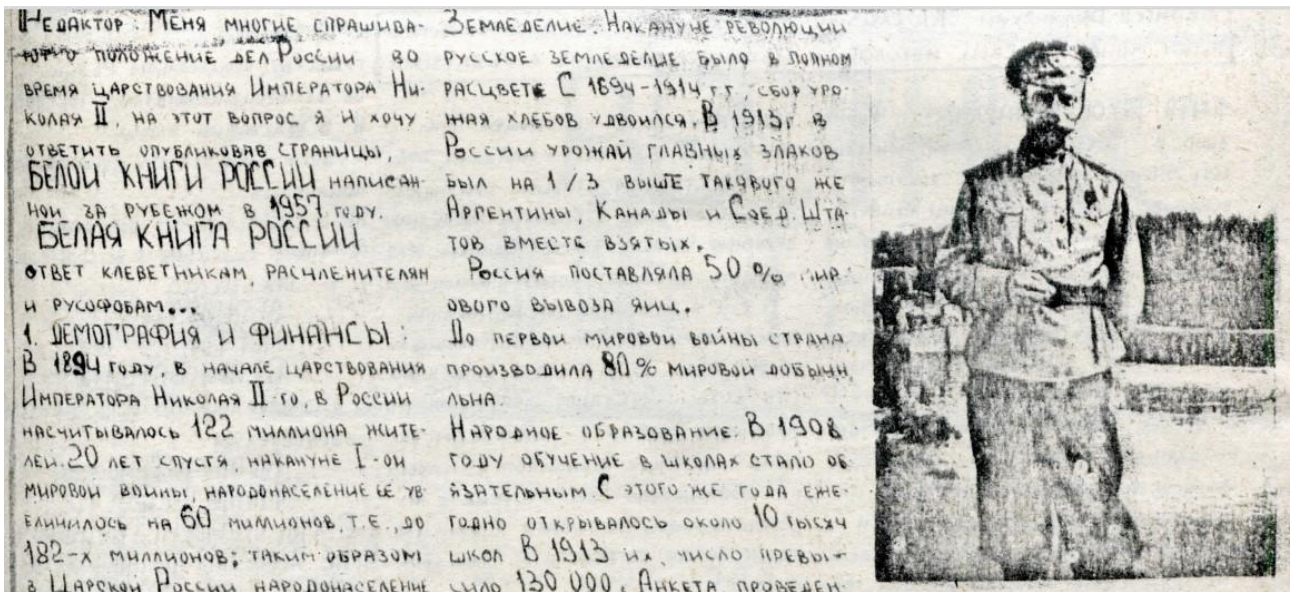 Редактор: Меня многие спрашива-
ют о положение дел России во
время царствования Императора Ни-
колая II, на этот вопрос я и хочу
ответить опубликовав страницы,
БЕЛОЙ КНИГИ РОССИИ написан-
ной за рубежом в 1957 году.
БЕЛАЯ КНИГА РОССИИ
ответ клеветникам, расчленителям
и русофобам...
1. ДЕМОГРАФИЯ И ФИНАНСЫ:
В 1894 году, в начале царствования
Императора Николая II-го, в России
насчитывалось 122 миллиона жите-
лей. 20 лет спустя, накануне I-ой
мировой войны, народонаселение её ув
еличилось на 60 миллионов, т.е. до
182-х миллионов; таким образом
в Царской России народонаселение
Земледелие. Накануне революции
русское земледелие было в полном
расцвете С 1894-1914 г.г. сбор уро-
жая хлебов удвоился. В 1913г в
России урожай главных злаков
был на 1/3 выше такового же
Аргентины, Канады и Соед. Шта-
тов вместе взятых.
Россия поставляла 50% мир-
ового вывоза яиц.
До первой мировой войны страна
производила 80% мировой добычи
льна.
Народное образование. В 1908
году обучение в школах стало об
язательным. С этого же года еже-
годно открывалось около 10 тысяч
школ В 1913 их число превы-
сило 130 000. Анкета проведен-